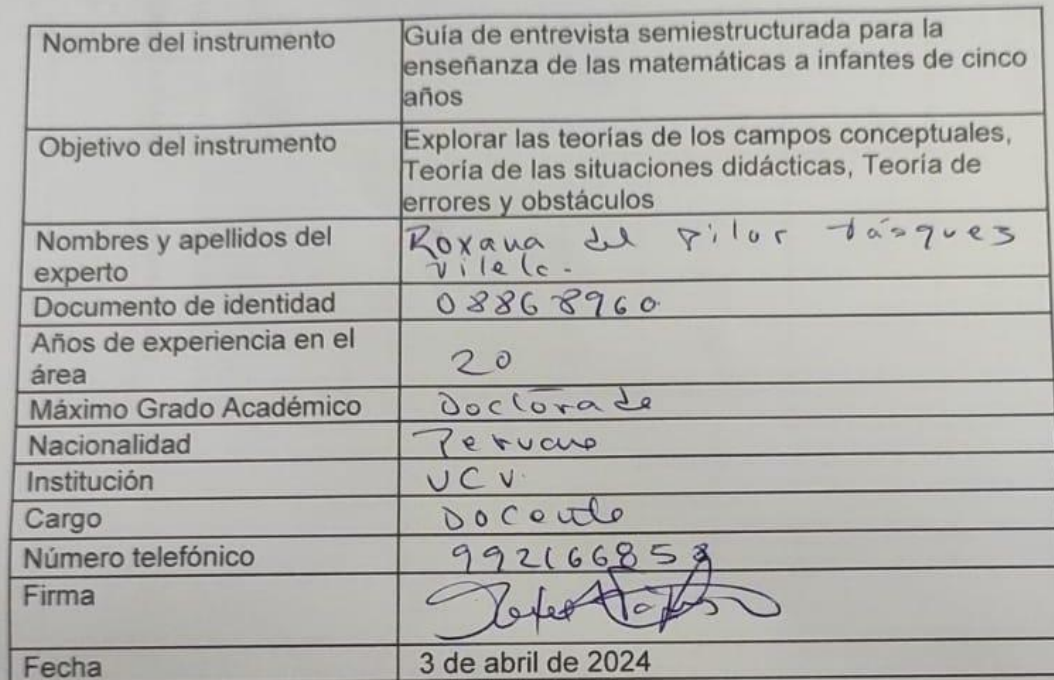 Nombre del instrumento
Guía de entrevista semiestructurada para la
enseñanza de las matemáticas a infantes de cinco
años
Objetivo del instrumento
Explorar las teorías de los campos conceptuales,
Teoría de las situaciones didácticas, Teoría de
errores y obstáculos
Nombres y apellidos del
experto
Roxana del Pilar
Documento de identidad
08868960
Años de experiencia en el
área
20
Máximo Grado Académico
Nacionalidad
Institución
UCV.
Cargo
Docente
Número telefónico
Firma
Fecha
3 de abril de 2024